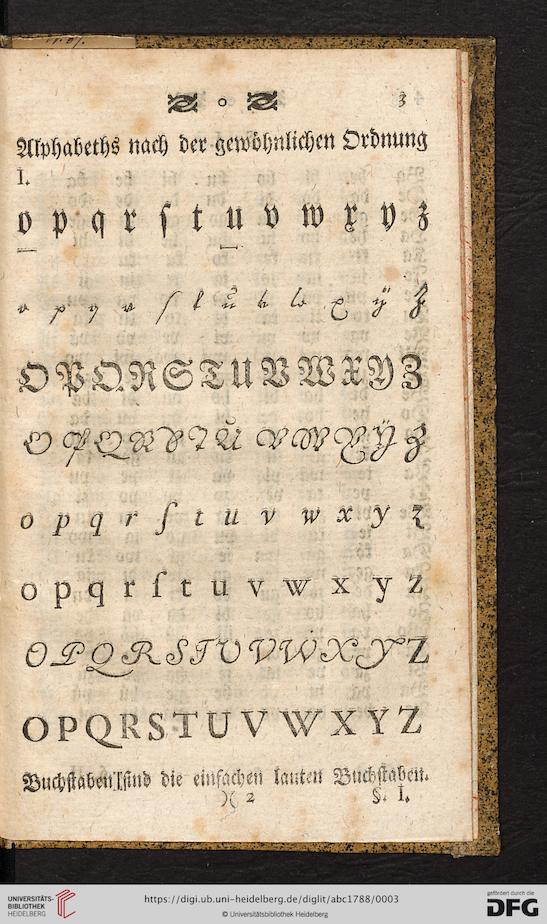 o 3
Alphabeths nach der gewöhnlichen Ordnung
I.
o p q r ſ t u v w x y z
o p q r ſ t ŭ v w x ÿ z
O P Q R S T U V W X Y Z
O P Q R S T U V W X Y Z
o p q r ſ t u v w x y z
o p q r ſ t u v w x y z
O P Q R S T U V W X Y Z
O P Q R S T U V W X Y Z
Buchſtaben ſind die einfachen lauten Buchſtaben.
A 2 §. I.
UNIVERSITÄTS-
BIBLIOTHEK
HEIDELBERG
https://digi.ub.uni-heidelberg.de/diglit/abc1788/0003
© Universitätsbibliothek Heidelberg
gefördert durch die
DFG